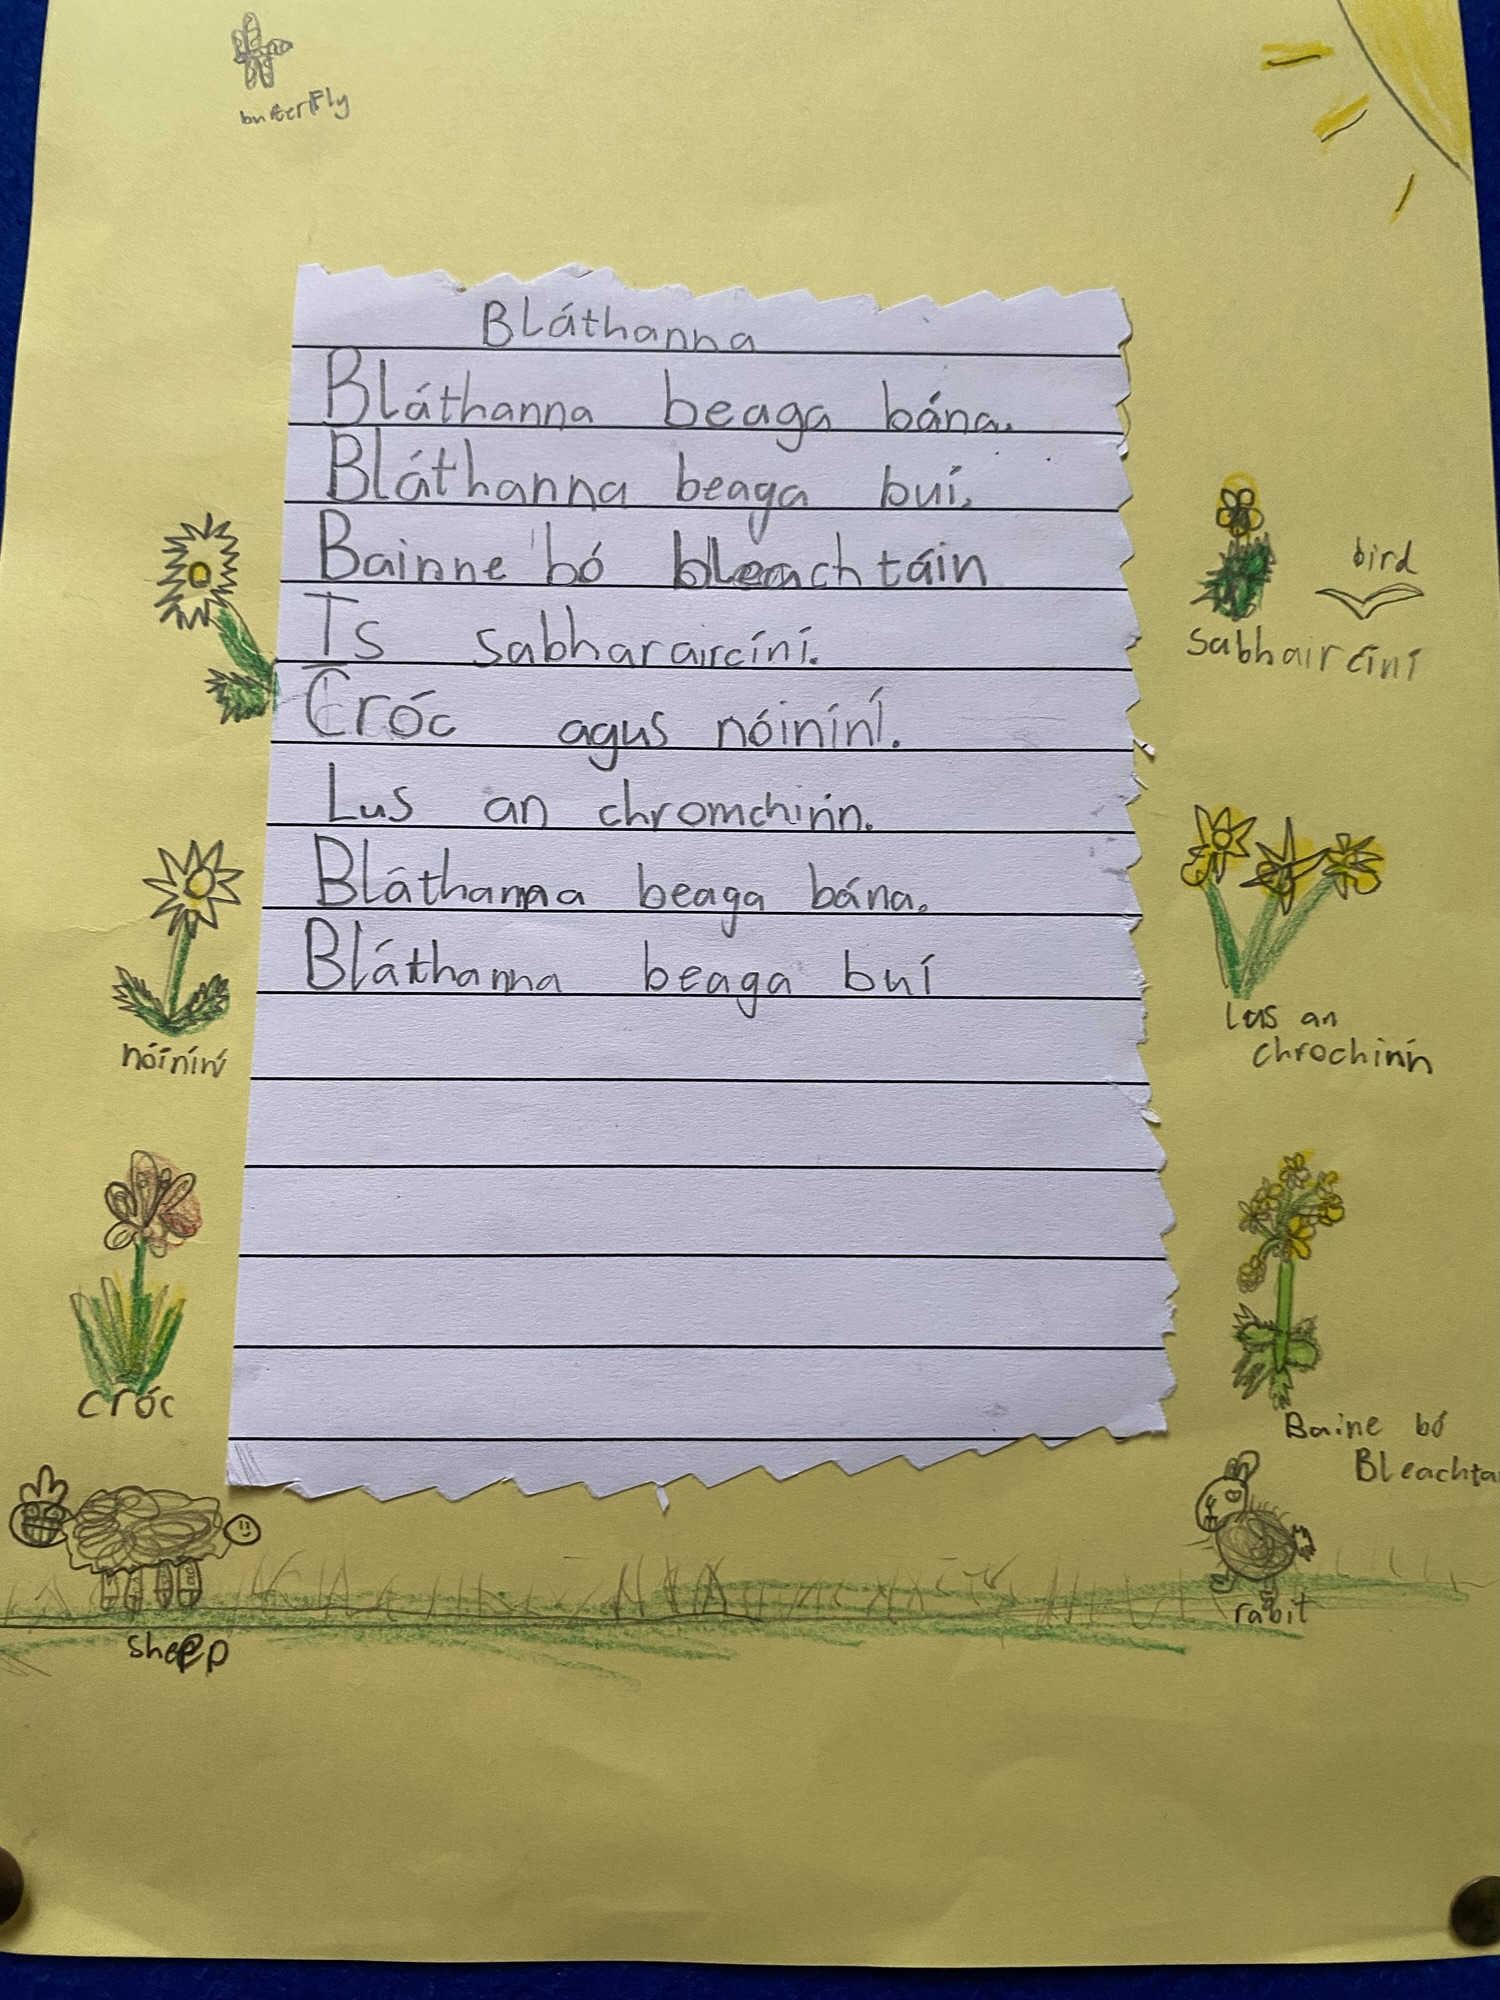 butterfly
Bláthanna
Bláthanna beaga bána.
Bláthanna beaga buí.
Bainne bó bleachtáin
Is sabhararircíní.
Cróc agus nóiníní.
Lus an chromchinn.
Bláthanna beaga bána.
Bláthanna beaga buí
bird
sabhaircíní
nóiníní
Lus an
chrochinn
cróc
Baine bó
Bleachta
rabit
sheep